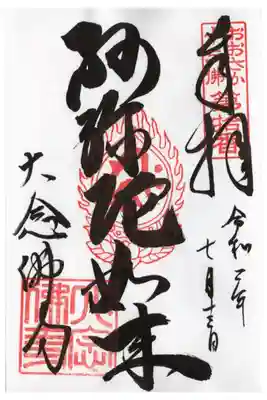 奉拝
令和二年
七月十三日
阿弥陀如来
大念佛寺
大念
佛寺